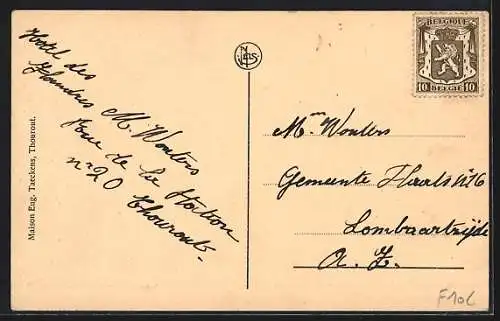 Hotel des
Flandres M. Wouters
Rue de la Station
n° 20 Thourout-
Maison Eug. Taeckens, Thourout.
NELS
BELGIQUE
10 10
BELGIË
Mm Wouters
Gemeente Plaats N° 16
Lombaartzijde
A. Z.
F10L